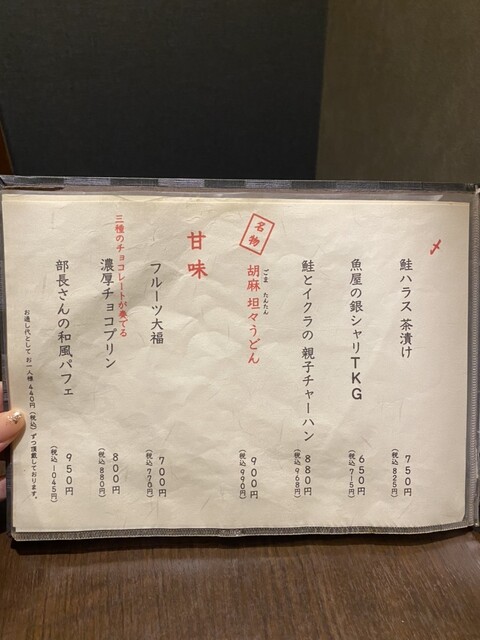 〆
鮭ハラス 茶漬け
750円
(税込825円)
魚屋の銀シャリTKG
650円
(税込715円)
鮭とイクラの 親子チャーハン
880円
(税込968円)
名物
ごま たんたん
胡麻 坦々うどん
900円
(税込990円)
甘味
フルーツ大福
700円
(税込770円)
三種のチョコレートが奏でる
濃厚チョコプリン
800円
(税込880円)
部長さんの和風パフェ
950円
(税込1045円)
お通し代としてお一人様440円(税込)ずつ頂戴しております。